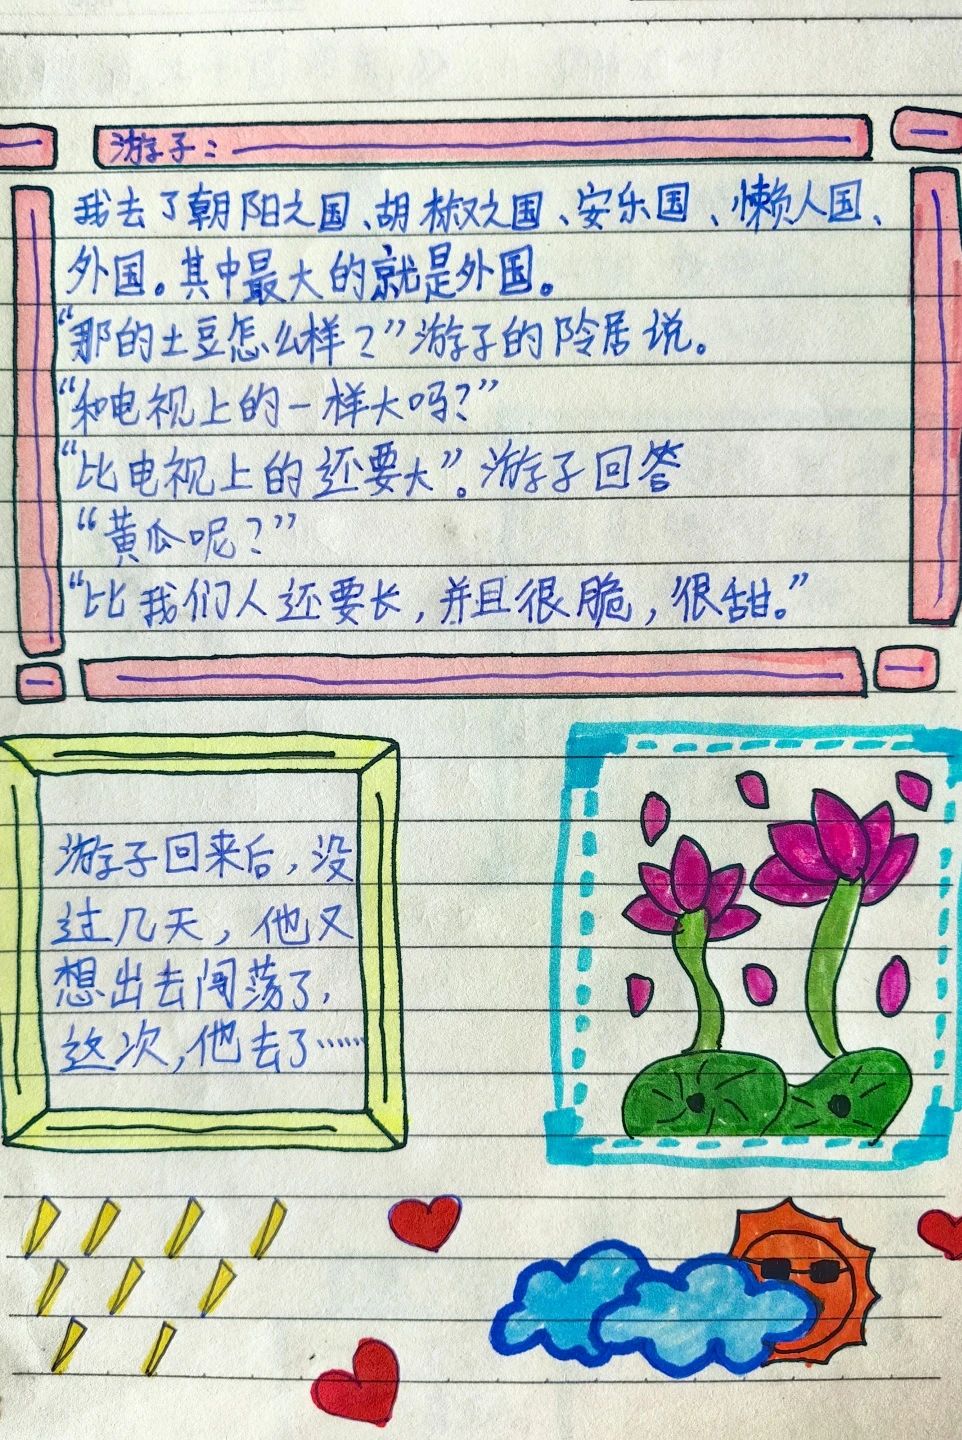 游子：
我去了朝阳之国、胡椒之国、安乐国、懒人国、
外国。其中最大的就是外国。
“那的土豆怎么样？”游子的邻居说。
“和电视上的一样大吗？”
“比电视上的还要大”。游子回答
“黄瓜呢？”
“比我们人还要长，并且很脆，很甜。”
游子回来后，没
过几天，他又
想出去闯荡了，
这次，他去了……